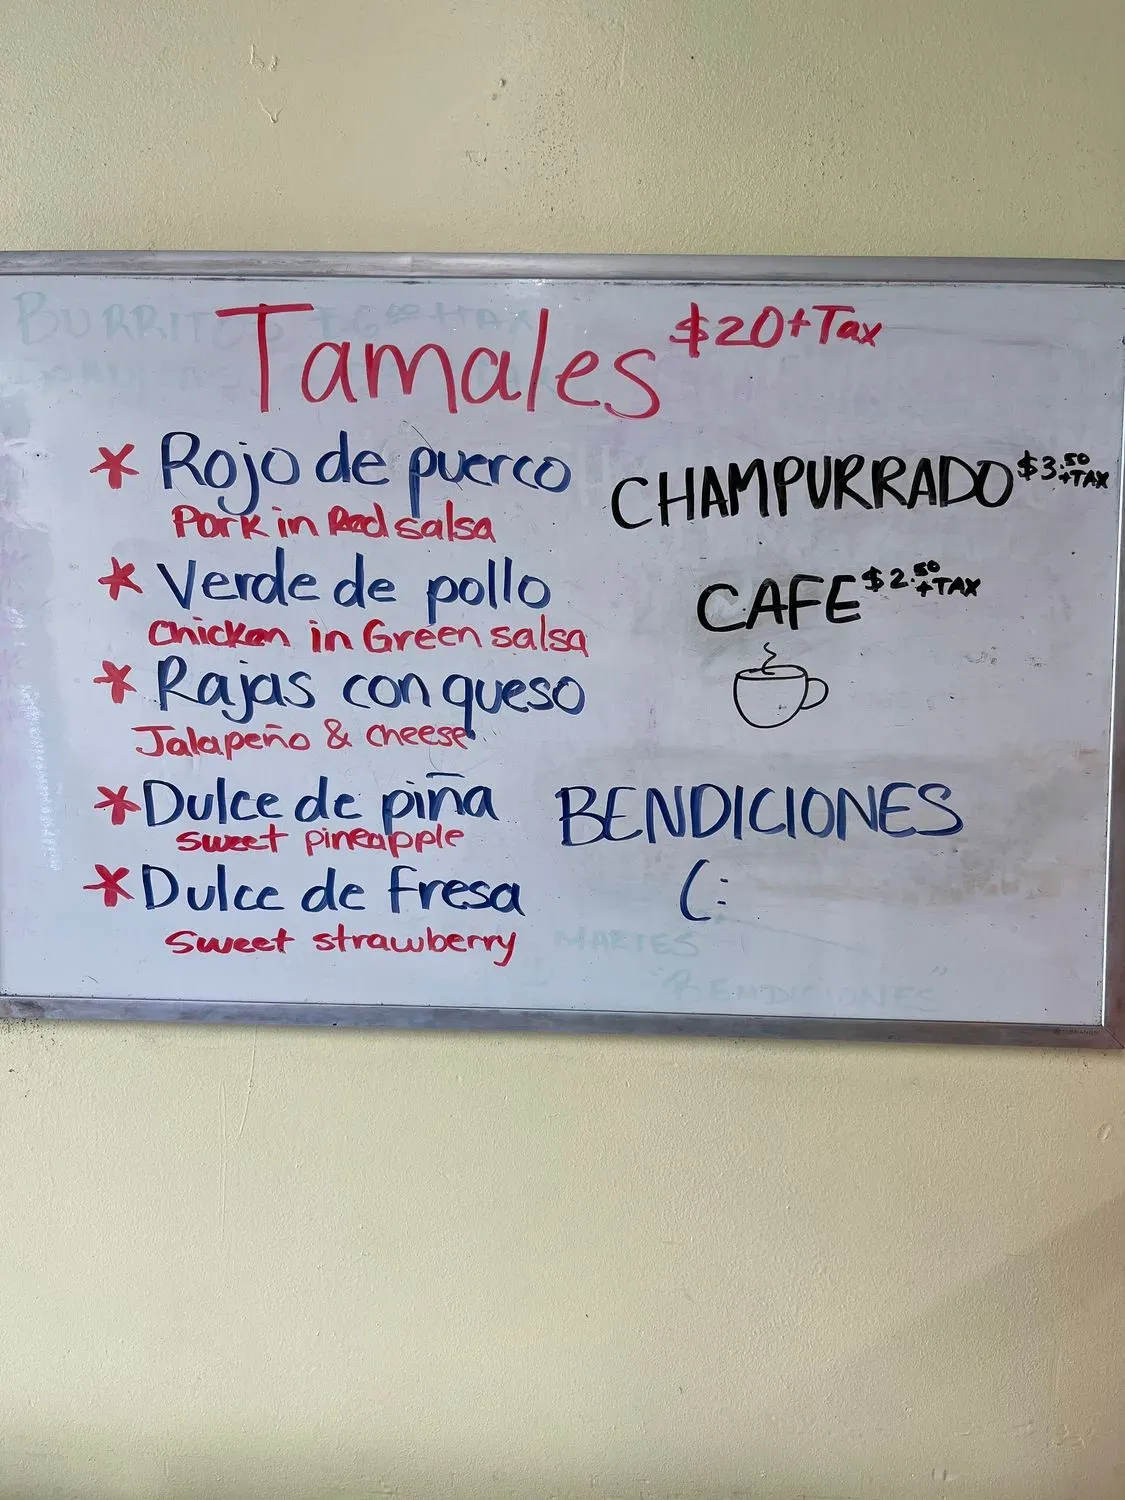 Tamales $20+Tax
* Rojo de puerco
Pork in Red salsa
* Verde de pollo
Chicken in Green salsa
* Rajas con queso
Jalapeño & cheese
* Dulce de piña
sweet pineapple
* Dulce de fresa
sweet strawberry
CHAMPURRADO $3.50 +TAX
CAFE $2.50 +TAX
BENDICIONES
(:
MARTES
"BENDICIONES"